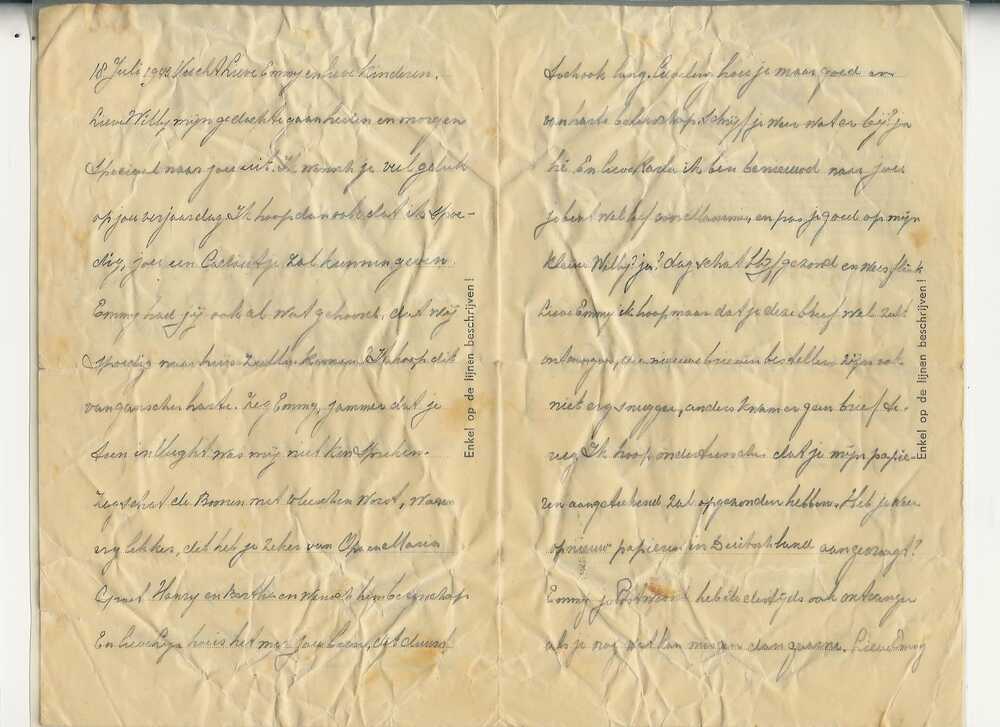 18 Juli 1943 Vught Lieve Emmy en lieve kinderen.
Lieve Willy mijn gedachte gaan heden en morgen
speciaal naar jou uit. Ik wensch je veel geluk
op jou verjaardag. Ik hoop dan ook dat ik spoe-
dig, jou een Cadeautje zal kunnen geven.
Emmy had jij ook al wat gehoord, dat wij
spoedig naar huis zullen komen? Ik hoop dit
van ganscher harte. Zeg Emmy, jammer dat je
toen in Vught was mij niet kon spreken.
Zeg schat de Boonen met Worst, waren
erg lekker, dat heb je zeker van Opa en
Groet Henry en Bertha en wensch hem beterschap
En lieve hoe is het met jou been, dat duurt
toch ook lang. hou je maar goed en
van harte beterschap. Schrijf je weer wat er bij? ja
hé. En lieve ik ben benieuwd naar jou
je bent wel lief voor Mamma, en pas je goed op mijn
kleine Willy? ja? dag schat blijf gezond en wees flink
Lieve Emmy ik hoop maar dat je deze brief wel zult
ontvangen, de nieuwe brieven bestellers zijn ook
niet erg snugger, anders kwam er geen brief te-
rug. Ik hoop ondertusschen dat je mijn papie-
ren aangeteekend zal opgezonden hebben. Heb je weer
opnieuw papieren in Duitschland aangevraagd?
Emmy jou heb ik destijds ook ontvangen
als je nog wat kan missen dan gaarne. Lieve Emmy
Enkel op de lijnen beschrijven!
Enkel op de lijnen beschrijven!